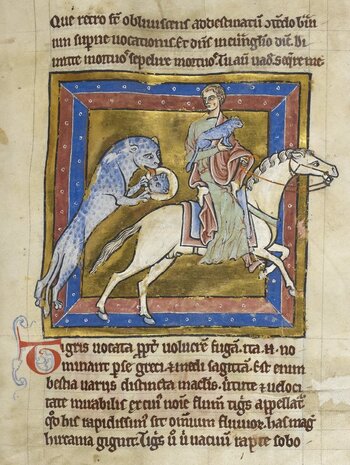 Que retro st̄ obliuiscens ad destinatū ↄtēdo
um supne uocationis. Et dn̄s in euuīglio dic̄. Di
mitte mortuos sepelire mortuos. Tu aū uade sequere me
Tigris uocata ppt̄ uolucrem fugā. ita .n. no
minant pse greci & medi sagittā. Est enim
bestia uariis distincta maclis. uirtute & ueloci
tate mirabilis ex cuiꝰ noīe flum̄ tigs appellatꝰ
qo hic rapidissimꝰ sit omnium fluuior. has mag
hircania gignit. Tigs ū ū uacuū rapte sobo